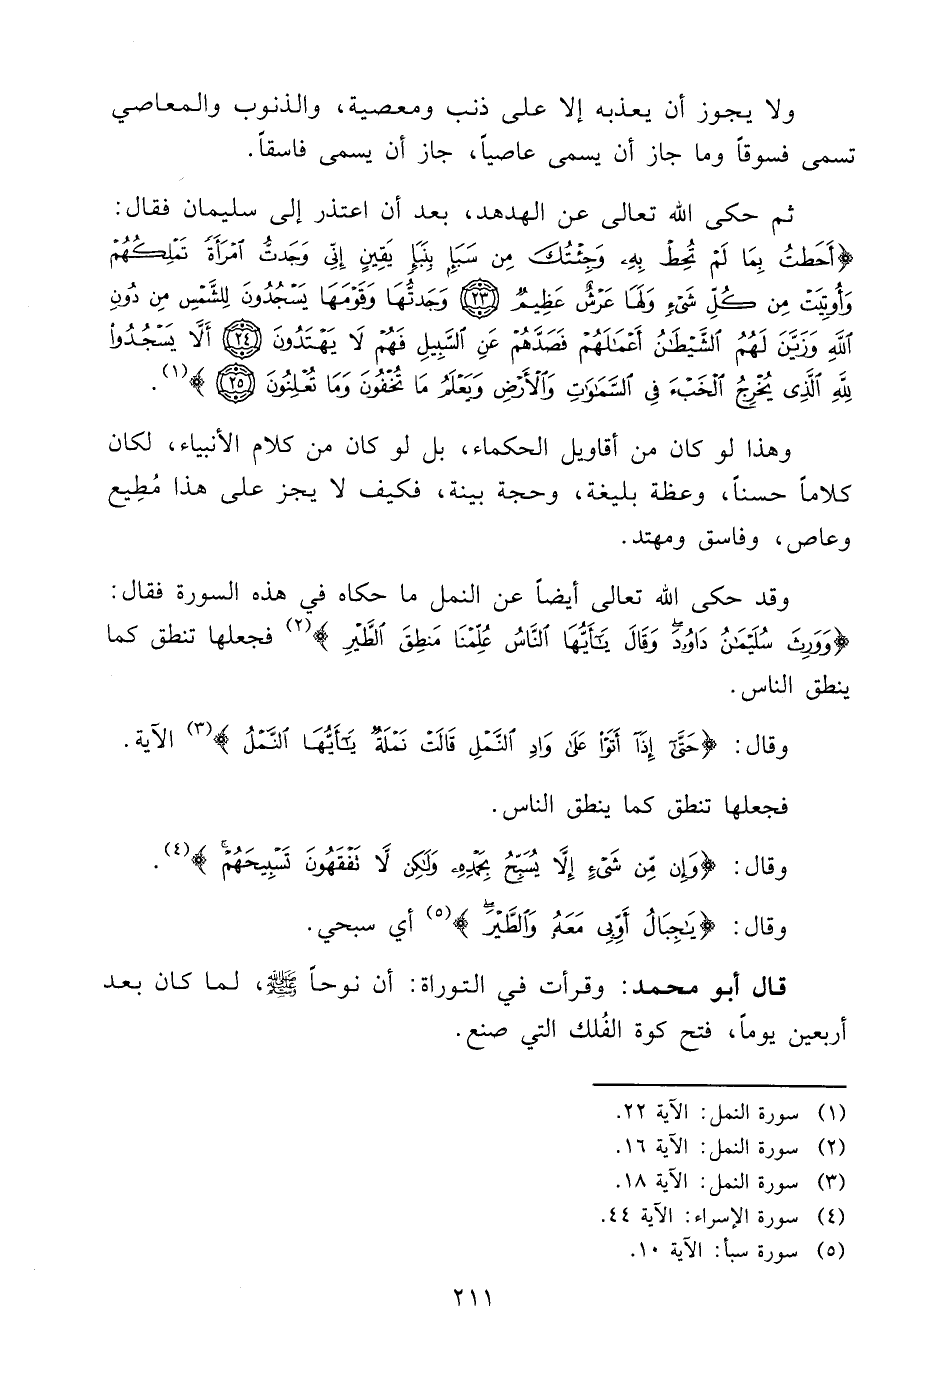 ولا يجوز أن يعذبه إلا على ذنب ومعصية، والذنوب والمعاصي
تسمى فسوقاً وما جاز أن يسمى عاصياً، جاز أن يسمى فاسقاً.
ثم حكى الله تعالى عن الهدهد، بعد أن اعتذر إلى سليمان فقال:
﴿أَحَطتُ بِمَا لَمْ تُحِطْ بِهِۦ وَجِئْتُكَ مِن سَبَإٍ بِنَبَإٍ يَقِينٍ إِنِّي وَجَدتُّ ٱمْرَأَةً تَمْلِكُهُمْ
وَأُوتِيَتْ مِن كُلِّ شَيْءٍ وَلَهَا عَرْشٌ عَظِيمٌ ٢٣ وَجَدتُّهَا وَقَوْمَهَا يَسْجُدُونَ لِلشَّمْسِ مِن دُونِ
ٱللَّهِ وَزَيَّنَ لَهُمُ ٱلشَّيْطَٰنُ أَعْمَٰلَهُمْ فَصَدَّهُمْ عَنِ ٱلسَّبِيلِ فَهُمْ لَا يَهْتَدُونَ ٢٤ أَلَّا يَسْجُدُوا۟
لِلَّهِ ٱلَّذِى يُخْرِجُ ٱلْخَبْءَ فِى ٱلسَّمَٰوَٰتِ وَٱلْأَرْضِ وَيَعْلَمُ مَا تُخْفُونَ وَمَا تُعْلِنُونَ ٢٥﴾(١).
وهذا لو كان من أقاويل الحكماء، بل لو كان من كلام الأنبياء، لكان
كلاماً حسناً، وعظة بليغة، وحجة بينة، فكيف لا يجز على هذا مُطِيع
وعاص، وفاسق ومهتد.
وقد حكى الله تعالى أيضاً عن النمل ما حكاه في هذه السورة فقال:
﴿وَوَرِثَ سُلَيْمَٰنُ دَاوُۥدَۖ وَقَالَ يَٰٓأَيُّهَا ٱلنَّاسُ عُلِّمْنَا مَنطِقَ ٱلطَّيْرِ﴾(٢) فجعلها تنطق كما
ينطق الناس.
وقال: ﴿حَتَّىٰٓ إِذَآ أَتَوْا۟ عَلَىٰ وَادِ ٱلنَّمْلِ قَالَتْ نَمْلَةٌ يَٰٓأَيُّهَا ٱلنَّمْلُ﴾(٣) الآية.
فجعلها تنطق كما ينطق الناس.
وقال: ﴿وَإِن مِّن شَىْءٍ إِلَّا يُسَبِّحُ بِحَمْدِهِۦ وَلَٰكِن لَّا تَفْقَهُونَ تَسْبِيحَهُمْۚ﴾(٤).
وقال: ﴿يَٰجِبَالُ أَوِّبِى مَعَهُۥ وَٱلطَّيْرَۖ﴾(٥) أي سبحي.
قال أبو محمد: وقرأت في التوراة: أن نوحاً ﷺ، لما كان بعد
أربعين يوماً، فتح كوة الفُلك التي صنع.
(١) سورة النمل: الآية ٢٢.
(٢) سورة النمل: الآية ١٦.
(٣) سورة النمل: الآية ١٨.
(٤) سورة الإسراء: الآية ٤٤.
(٥) سورة سبأ: الآية ١٠.
٢١١